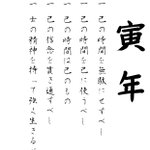 寅年
一 己の時間を無駄にせずべし
一 己の時間を己に使うべし
一 己の時間は己のもの
一 己の信念を貫き通すべし
一 士の精神を持って強く生きるべ